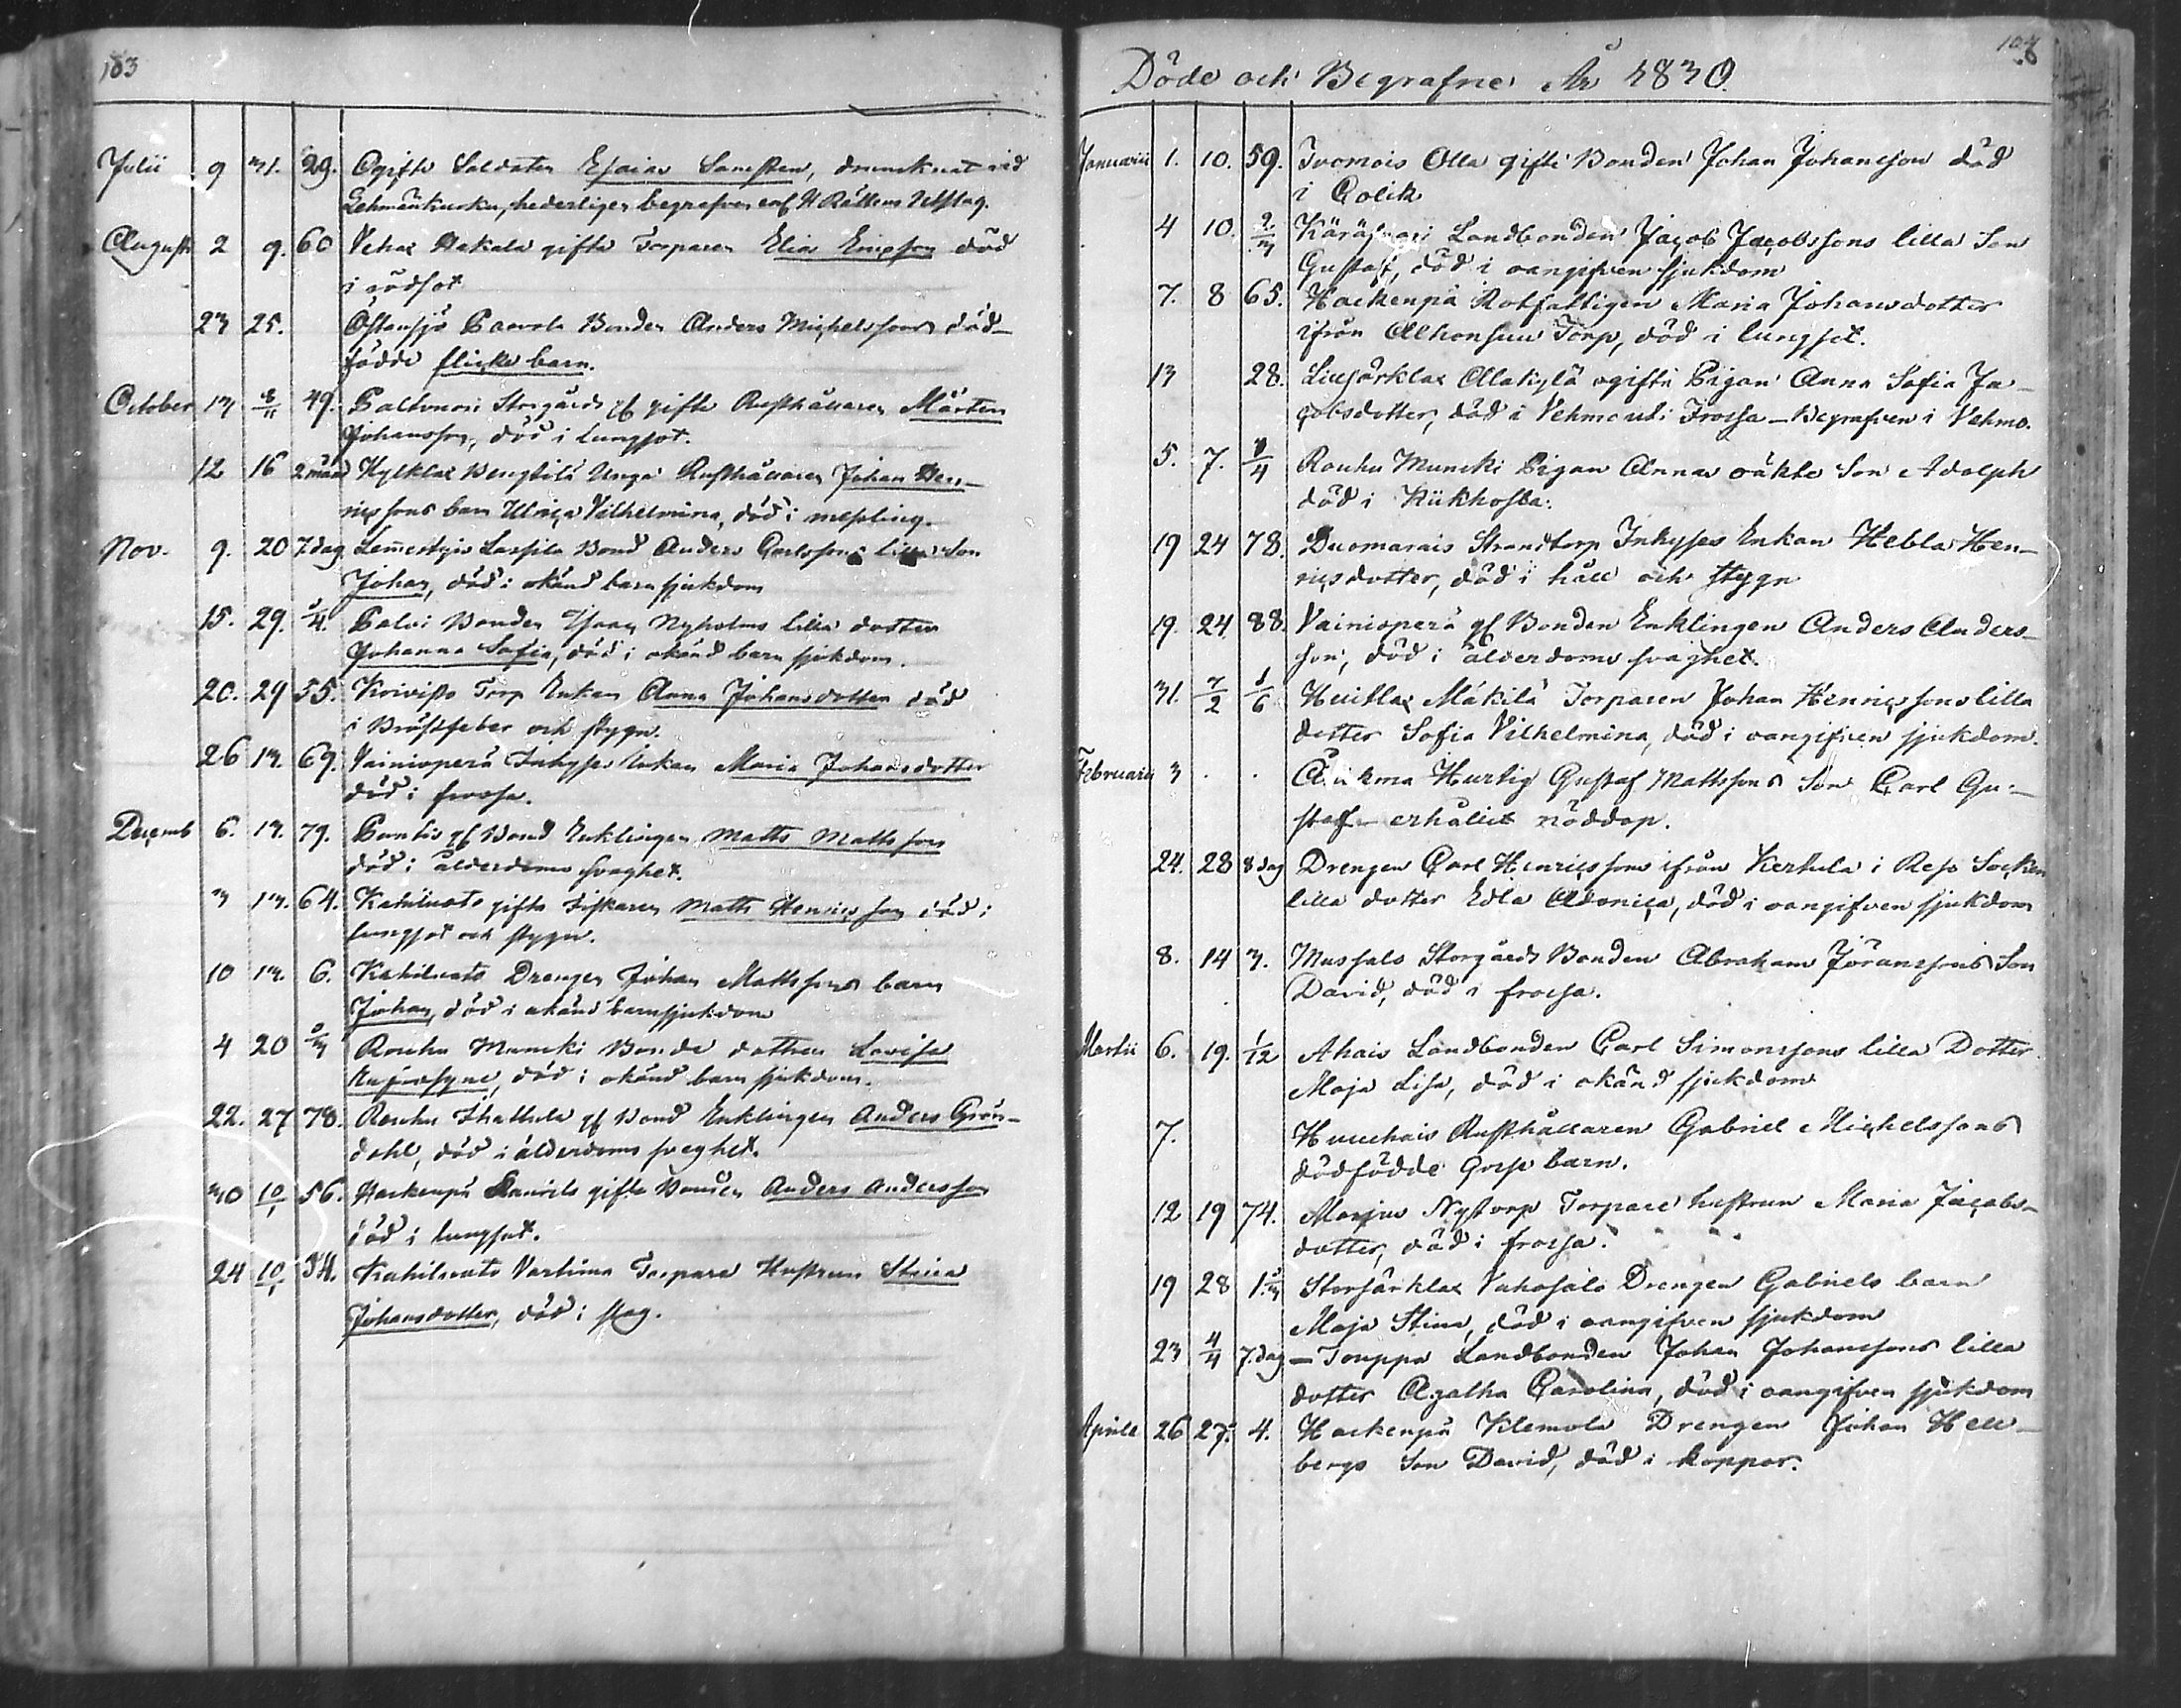 103
Julii 9 31. 29. Ogifte Soldaten Esaias Sandsten, drunknat vid
Lehmänkurku, hederligen begrafven enl. H Rättens Utslag.
Augusti 2 9. 60 Vehas Hakala gifte Torparen Elias Ericsson död
i rödsot
23 25. Östansjö Paavola Bonden Anders Michelssons död-
födde flicke barn.
October 13 8/11 49. Paltvuori Storgård gf gifte Rusthållaren Mårten
Johansson, död i lungsot.
12 16 2 mån Hylklax Bengtilä Unga Rusthållaren Johan Hen-
ricssons barn Ulrica Vilhelmina, död i messling.
Nov. 9. 20 7 dag Lemestyis Lassila Bond Anders Carlssons lilla Son
Johan, död i okänd barnsjukdom
15. 29. 3/4. Palvi Bonden Isaac Nyholms lilla dotter
Johanna Sofia, död i okänd barn sjukdom.
20. 29 55. Koivisto Torp Enkan Anna Johansdotter död
i Bröstfeber och stygn.
26 13. 69. Vainionperä Inhyses Enkan Maria Johansdotter
död i frossa.
Decemb 6. 13. 79. gf Bond Enklingen Matts Mattsson
död i ålderdoms svaghet.
3 13. 64. Kahiluoto gifte Fiskaren Matts Henricsson död i
lungsot och stygn.
10 13. 6. Kahiluoto Drengen Johan Mattssons barn
Johan, död i okänd barnsjukdom
4 20 Rouhu Muncki Bonde dottren Lovisa
Eufrosyne, död i okänd barn sjukdom.
22. 27 78. Rouhu gf Bond Enklingen Anders Grön-
dahl, död i ålderdoms svaghet.
30 10/1 56. Hackenpä gifte Bonden Anders Andersson
död i lungsot.
24 10/1 54. Kahiluoto Torpare Hustrun Stina
Johansdotter, död i slag.
103
Döde och Begrafne År 1830.
Januarii 1. 10. 59. Tuomois Olla gifte Bonden Johan Johansson död
i Colik
4 10. 2/3 Landbonden Jacob Jacobssons lilla Son
Gustaf, död i oangifven sjukdom
7. 8 65. Hackenpä Rotfattigen Maria Johansdotter
ifrån Alhonsuu Torp, död i lungsot.
13 28. Liusärklax Ollakylä ogifte Pigan Anna Sofia Ja-
cobsdotter, död i Vehmo uti Frossa - Begrafven i Vehmo.
5. 7. Rouhu Muncki Pigan Annas oäkta Son Adolph
död i Kikhosta.
19 24 78. Duomarais Strandtorp Inhyses Enkan Hebla Hen-
ricsdotter, död i håll och stygn
19. 24 88. Vainionperä gf Bonden Enklingen Anders Anders-
son, död i ålderdoms svaghet.
31. 7/2 1/6 Mäkilä Torparen Johan Henricssons lilla
dotter Sofia Vilhelmina, död i oangifven sjukdom.
Februarii 3 . . Hurtig Gustaf Mattssons Son Carl Gu-
staf - erhållit nöddop.
24. 28 8 dag Drengen Carl Henricssons ifrån Kertula i Reso Socken
lilla dotter Edla Adonica, död i oangifven sjukdom
8. 14 3. Mussalo Storgårds Bonden Abraham Jöranssons Son
David, död i frossa.
Martii 6. 19. 1/12 Ahais Landbonden Carl Simonssons lilla Dotter
Maja Lisa, död i okänd sjukdom
7. Huuhais Rusthållaren Gabriel Michelssons
dödfödde Gosse barn.
12 19 74. Marjus Nystorp Torpare hustrun Maria Jacobs-
dotter, död i frossa.
19 28 Storsärklax Vahosalo Drengen Gabriels barn
Maja Stina, död i oangifven sjukdom
23 4/4 7. dag - Touppo Landbonden Johan Johanssons lilla
dotter Agatha Carolina, död i oangifven sjukdom
Aprill 26 27. 4. Hackenpä Klemola Drengen Johan Hell-
bergs Son David, död i koppor.